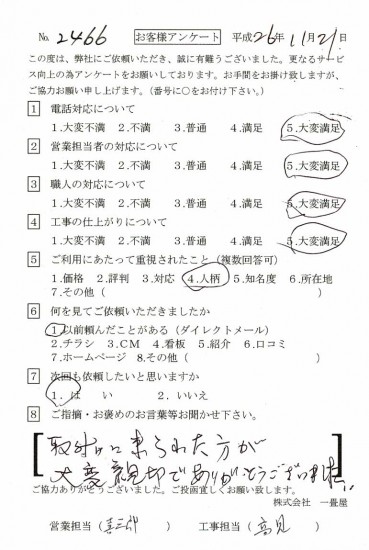 No. 2466 お客様アンケート 平成26年11月21日
この度は、弊社にご依頼いただき、誠に有難うございました。更なるサービ
ス向上の為アンケートをお願いしております。お手間をお掛け致しますが、
ご協力お願い申し上げます。（番号に○をお付け下さい。）
1 電話対応について
1.大変不満 2.不満 3.普通 4.満足 5.大変満足
2 営業担当者の対応について
1.大変不満 2.不満 3.普通 4.満足 5.大変満足
3 職人の対応について
1.大変不満 2.不満 3.普通 4.満足 5.大変満足
4 工事の仕上がりについて
1.大変不満 2.不満 3.普通 4.満足 5.大変満足
5 ご利用にあたって重視されたこと（複数回答可）
1.価格 2.評判 3.対応 4.人柄 5.知名度 6.所在地
7.その他（ ）
6 何を見てご依頼いただきましたか
1.以前頼んだことがある（ダイレクトメール）
2.チラシ 3.CM 4.看板 5.紹介 6.口コミ
7.ホームページ 8.その他（ ）
7 次回も依頼したいと思いますか
1.はい 2.いいえ
8 ご指摘・お褒めのお言葉等お聞かせ下さい。
取外に来られた方が
大変親切でありがとうございました
ご協力ありがとうございました。ご投函宜しくお願い致します。
株式会社 一畳屋
営業担当（ ） 工事担当（高見）